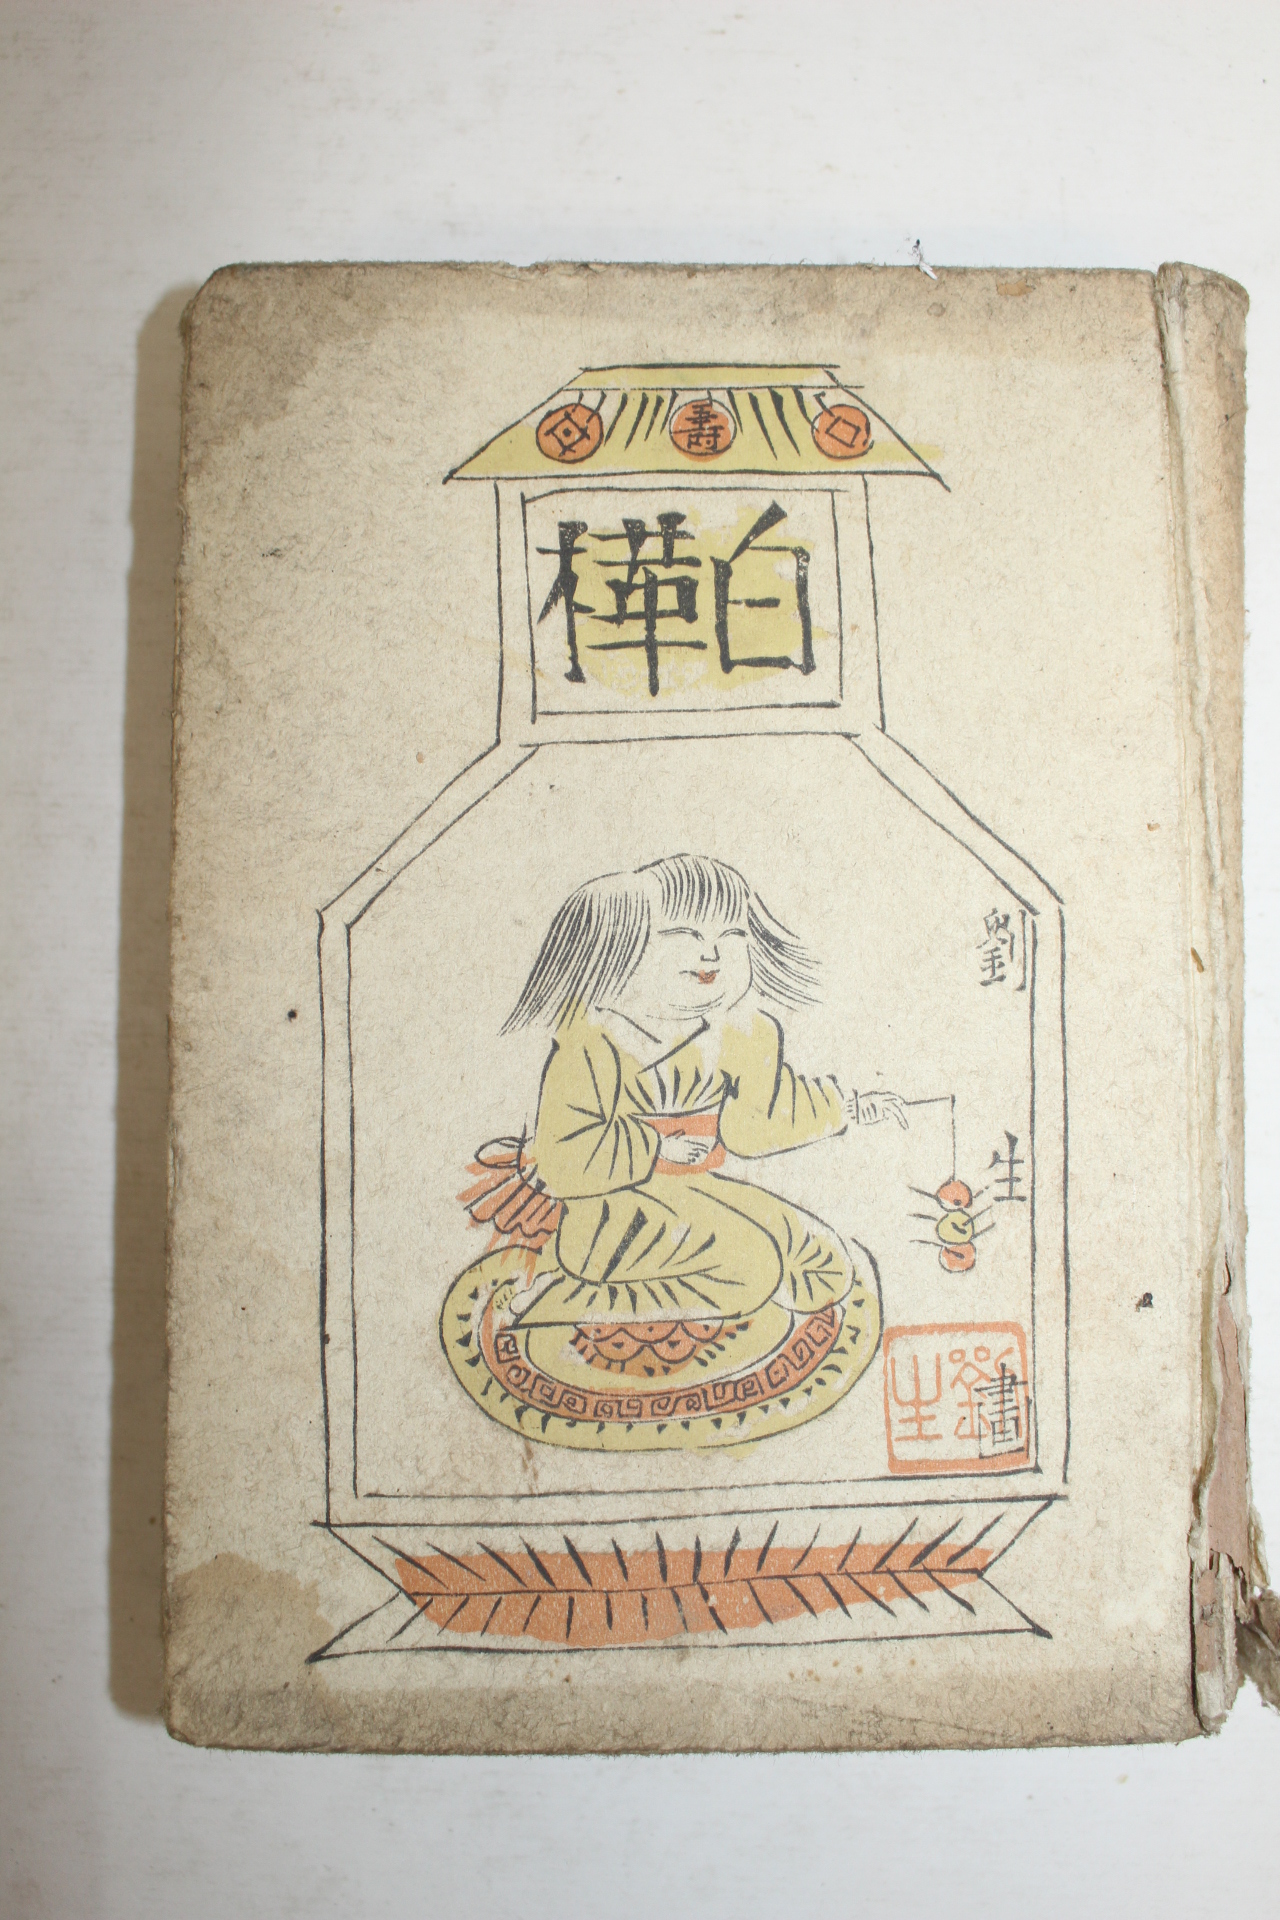 壽
白樺
劉
生
畫
劉生